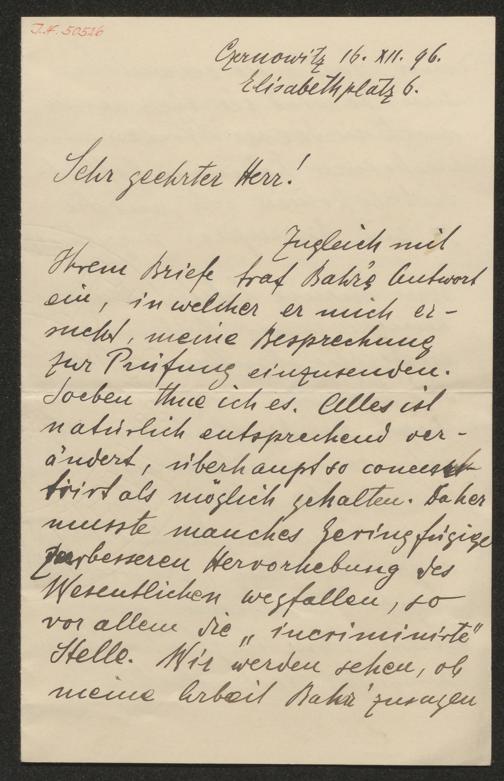 J.N. 50526
Czernowitz 16. XII. 96.
Elisabethplatz 6.
Sehr geehrter Herr!
Zugleich mit
Ihrem Briefe traf Bahr's Antwort
ein, in welcher er mich er-
sucht, meine Besprechung
zur Prüfung einzusenden.
Soeben thue ich es. Alles ist
natürlich entsprechend ver-
ändert, überhaupt so concent-
trirt als möglich gehalten. Daher
musste manches Geringfügige
zur besseren Hervorhebung des
Wesentlichen wegfallen, so
vor allem die „incriminirte"
Stelle. Wir werden sehen, ob
meine Arbeit Bahr zusagen